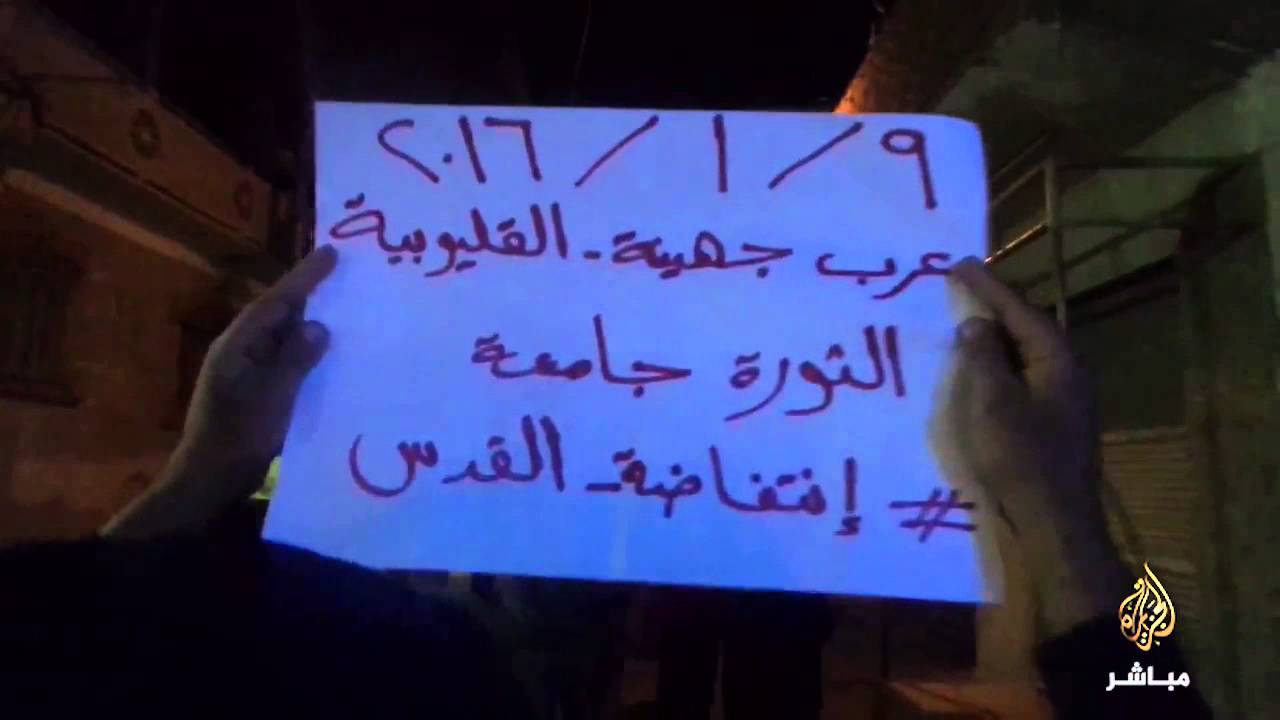 ٩ / ١ / ٢٠١٦
عرب جهينة - القليوبية
الثورة جامعة
# إنتفاضة - القدس
الجزيرة
مباشر